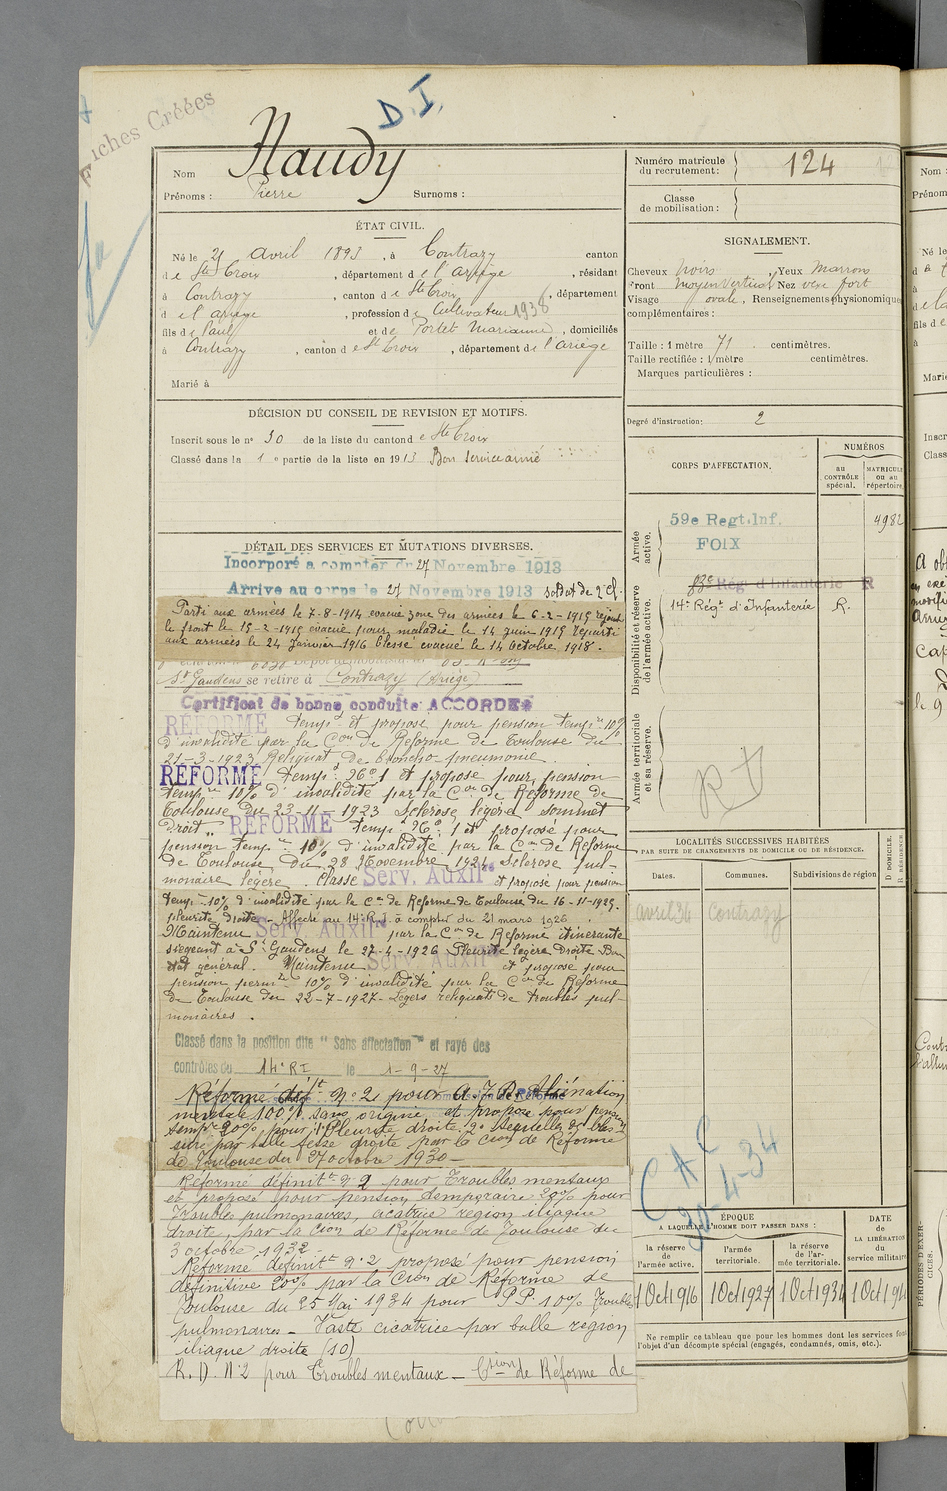 Fiches Créées
D.I.
Nom Naudy
Prénoms : Pierre Surnoms :
ÉTAT CIVIL.
Né le 21 avril 1893, à Contrazy canton
de Ste Croix, département de l'Ariège, résidant
à Contrazy, canton de Ste Croix, département
d e l'ariège, profession de Cultivateur 1938
fils de Paul et de Portet Marianne, domiciliés
à Contrazy, canton de Ste Croix, département de l'ariège
Marié à
DÉCISION DU CONSEIL DE REVISION ET MOTIFS.
Inscrit sous le n° 30 de la liste du canton de Ste Croix
Classé dans la 1e partie de la liste en 1913 Bon service armé
DÉTAIL DES SERVICES ET MUTATIONS DIVERSES.
Incorporé a compter du 27 Novembre 1913
Arrive au corps le 27 Novembre 1913 soldat de 2e cl.
Parti aux armées le 7-8-1914 evacué zone des armées le 6-2-1915 rejoint
le front le 15-2-1915 évacué pour maladie le 14 juin 1915 reparti
aux armées le 24 Janvier 1916 blessé évacué le 14 Octobre 1918.
St Gaudens se retire à Contrazy (Ariège)
Certificat de bonne conduite ACCORDÉ
RÉFORMÉ tempre et proposé pour pension tempre 10%
d'invalidité par la Con de Réforme de Toulouse du
21-3-1923 Reliquat de broncho-pneumonie.
RÉFORMÉ tempre No 1 et proposé pour pension
tempre 10% d'invalidité par la Con de Réforme de
Toulouse du 23-11-1923 Sclérose légère sommet
droit RÉFORMÉ tempre No 1 et proposé pour
pension tempre 10% d'invalidité par la Con de Réforme
de Toulouse du 28 Novembre 1924 Sclérose pul-
monaire légère. Classé Serv. Auxil. et proposé pour pension
temp. 10% d'invalidité par la Con de Réforme de Toulouse du 16-11-1925.
pleurite droite - Affecté au 14e R.I. à compter du 21 mars 1926.
Maintenu Serv. Auxil. par la Con de Réforme itinérante
siégeant à St Gaudens le 27-4-1926 Pleurite légère droite Bon
état général. Maintenu Serv. Auxil. et proposé pour
pension perm. 10% d'invalidité par la Con de Réforme
de Toulouse du 22-7-1927 - Légers reliquats de troubles pul-
monaires.
Classé dans la position dite "Sans affectation" et rayé des
contrôles du 14e RI le 1-9-27
Réformé déft no 2 pour Aliénation
mentale 100% sans origine et proposé pour pension
tempre 20% pour 1° Pleurite droite. 2° Sequelles de bles-
sure par balle fesse droite par la Cion de Réforme
de Toulouse du 27 octobre 1930 -
Réformé définitt no 2 pour Troubles mentaux
et proposé pour pension temporaire 20% pour
Troubles pulmonaires, cicatrice region iliaque
droite, par la Cion de Réforme de Toulouse du
3 octobre 1932 -
Réformé définitt no 2 proposé pour pension
définitive 20% par la Cion de Réforme de
Toulouse du 25 Mai 1934 pour P.P. 10% Troubles
pulmonaires - Vaste cicatrice par balle region
iliaque droite (10)
R. D. No 2 pour Troubles mentaux - Ction de Réforme de
Numéro matricule du recrutement : 124
Classe de mobilisation :
SIGNALEMENT.
Cheveux noirs, Yeux Marrons
Front moyen vertical Nez vexe fort
Visage ovale, Renseignements physionomiques
complémentaires :
Taille : 1 mètre 71 centimètres.
Taille rectifiée : 1 mètre centimètres.
Marques particulières :
Degré d'instruction: 2
CORPS D'AFFECTATION.
NUMÉROS
au CONTRÔLE spécial.
MATRICULE OU AU répertoire.
Armée active.
59e Regt. Inf. 4982
FOIX
Disponibilité et réserve de l'armée active.
83e Rég d'Infanterie R
14e Régt d'Infanterie R.
Armée territoriale et sa réserve.
LOCALITÉS SUCCESSIVES HABITÉES
PAR SUITE DE CHANGEMENTS DE DOMICILE OU DE RÉSIDENCE.
D DOMICILE. R RÉSIDENCE
Dates. Communes. Subdivisions de région
avril 34 Contrazy
CAC
20-4-34
ÉPOQUE
A LAQUELLE L'HOMME DOIT PASSER DANS :
la réserve de l'armée active.
l'armée territoriale.
la réserve de l'armée territoriale.
DATE de LA LIBÉRATION du service militaire.
1 Oct 1916 1 Oct 1927 1 Oct 1934
Ne remplir ce tableau que pour les hommes dont les services font
l'objet d'un décompte spécial (engagés, condamnés, omis, etc.).
PÉRIODES D'EXER-
CICES.